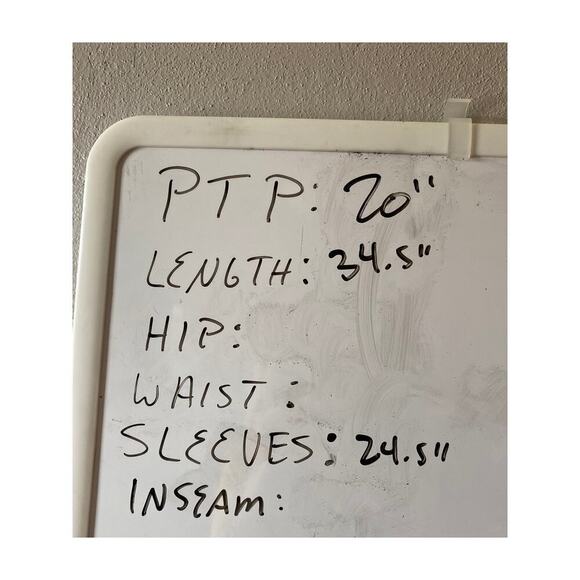 PTP: 20"
LENGTH: 34.5"
HIP:
WAIST:
SLEEVES: 24.5"
INSEAM: